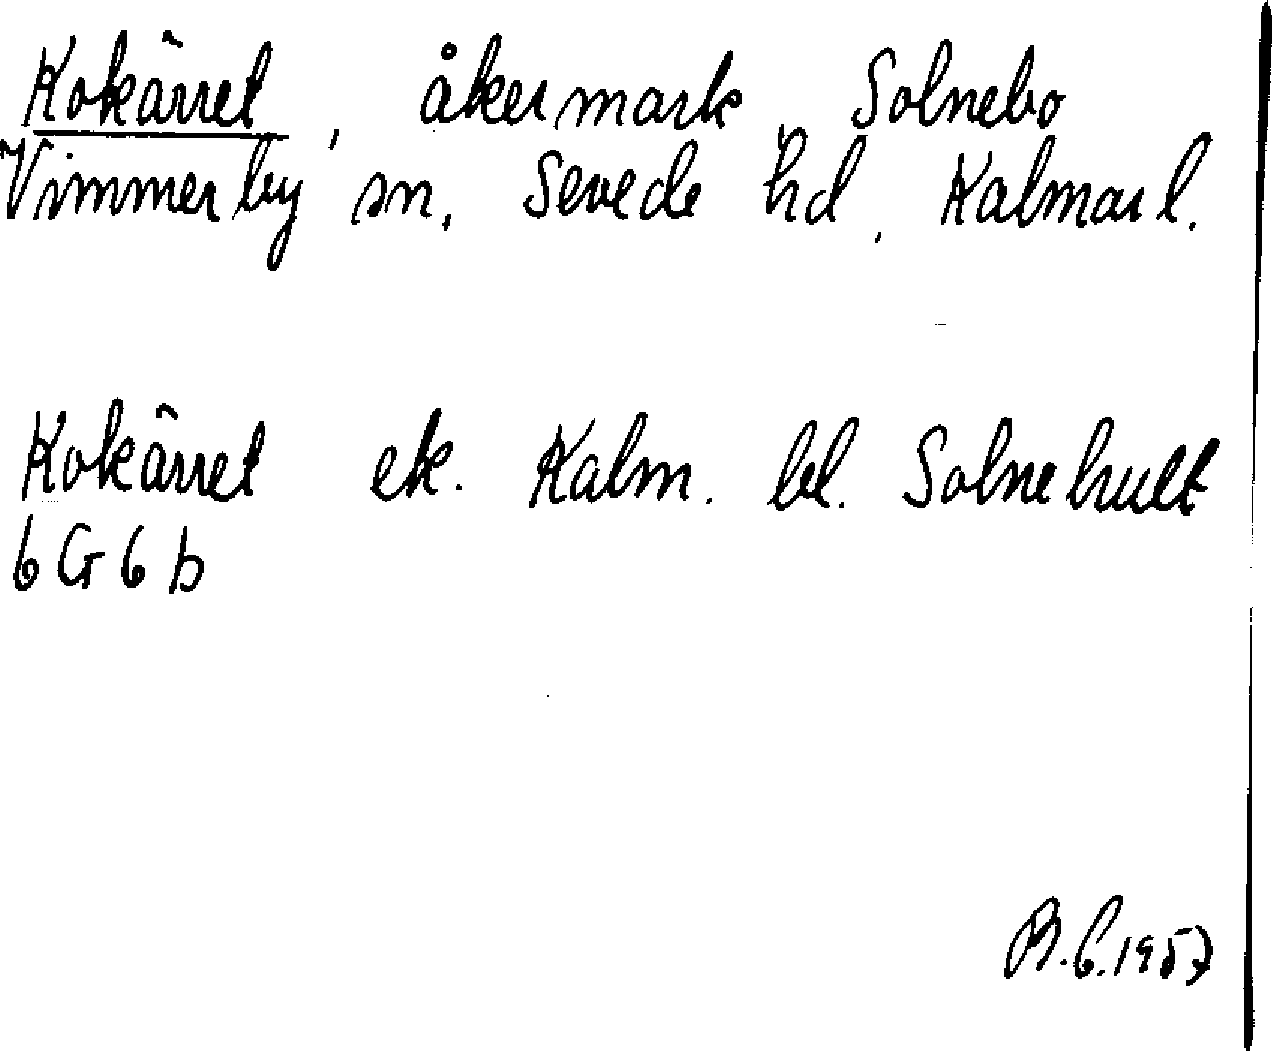 Kokärret, åkermark, Solnebo
Vimmerby sn, Sevede hd, Kalmar l.
Kokärret ek. Kalm. bl. Solnehult
6G6b
B.C. 1957